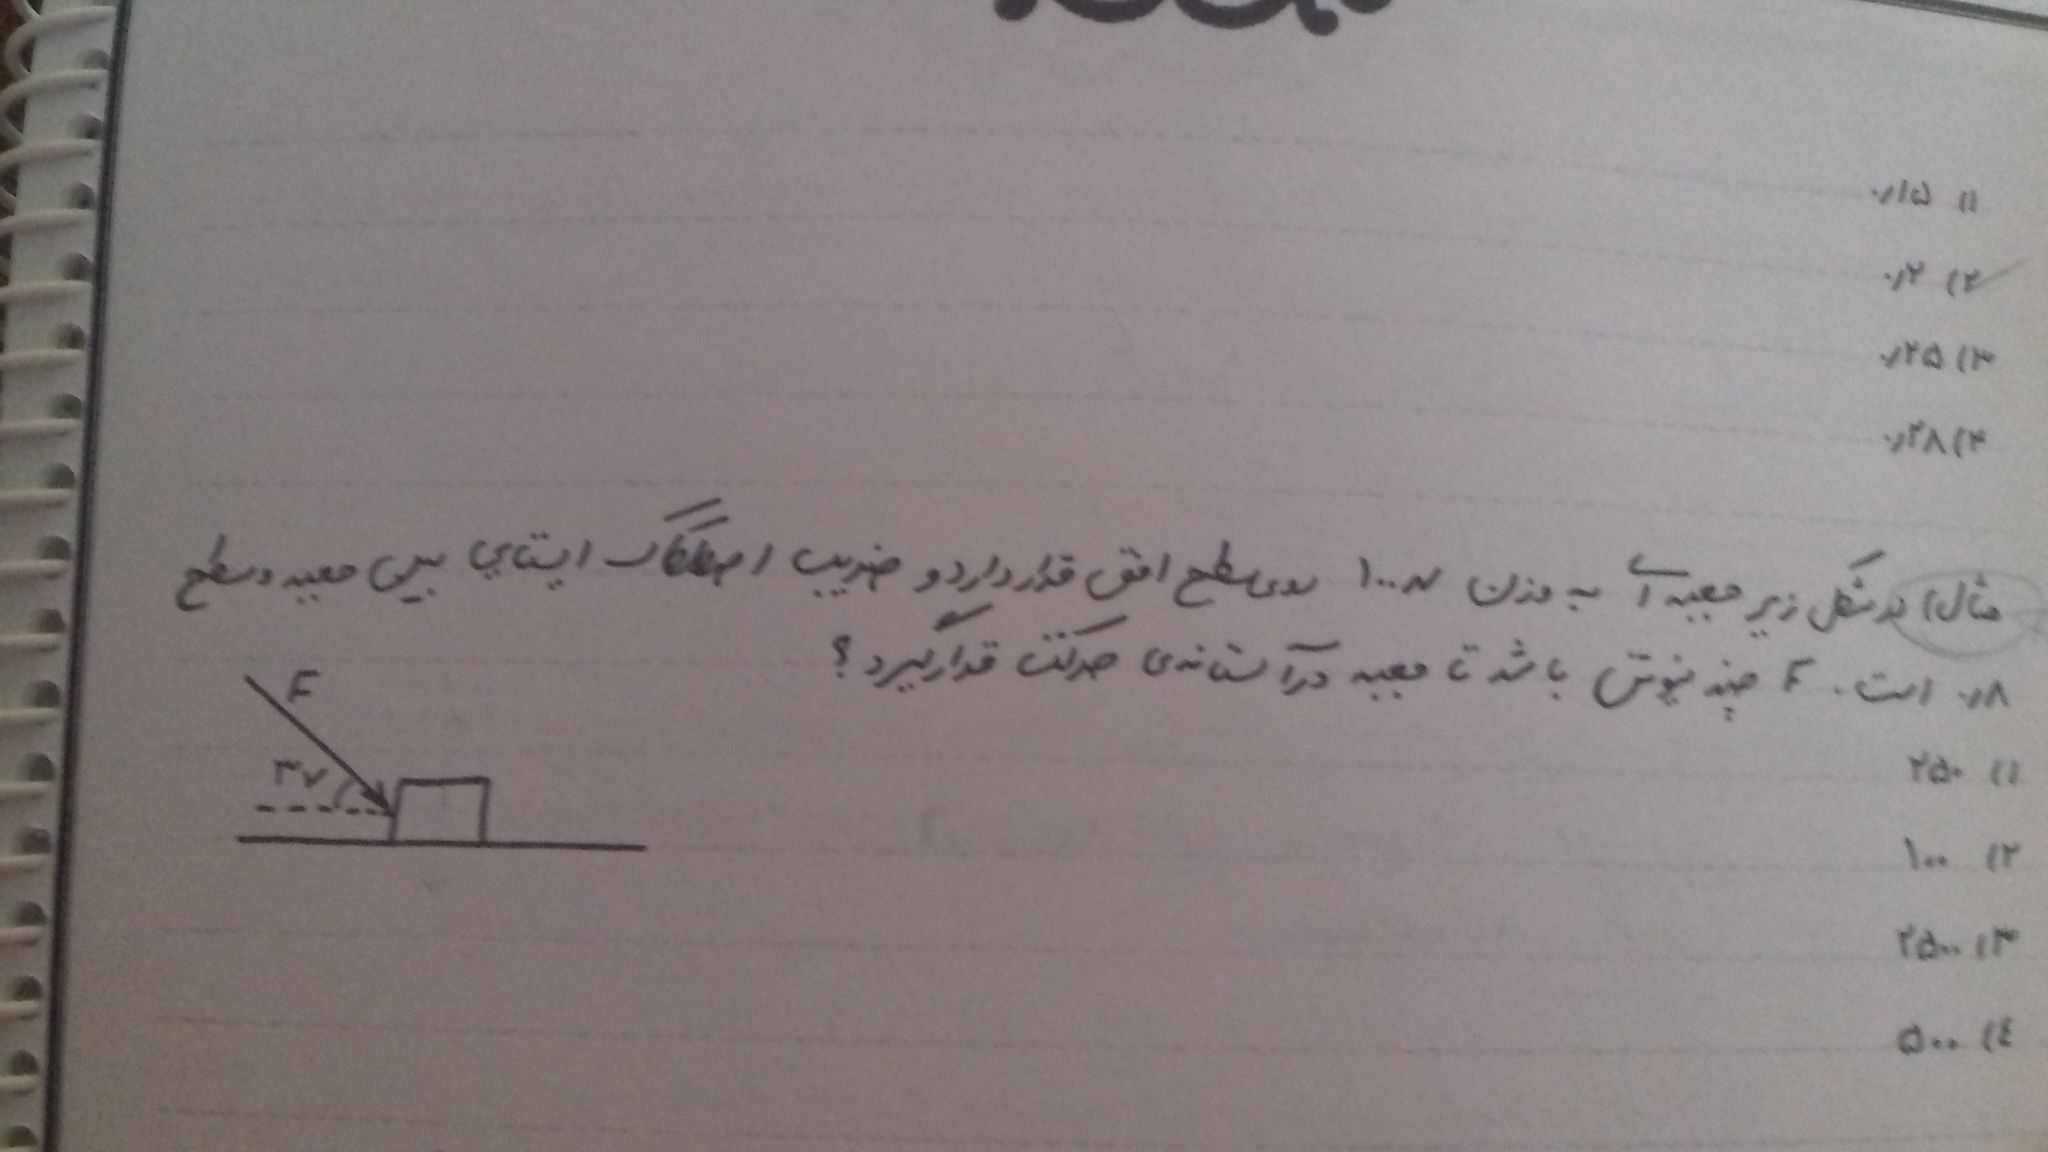 ۱) ۰٫۱۵
۲) ۰٫۲
۳) ۰٫۲۵
۴) ۰٫۲۸
مثال) در شکل زیر جعبه ای به وزن ۱۰۰N روی سطح افق قرار دارد و ضریب اصطکاک ایستایی بین جعبه و سطح
۰٫۸ است. F چند نیوتن باشد تا جعبه در آستانه‌ی حرکت قرار گیرد؟
F
۳۷
۱) ۲۵۰
۲) ۱۰۰
۳) ۲۵۰۰
۴) ۵۰۰